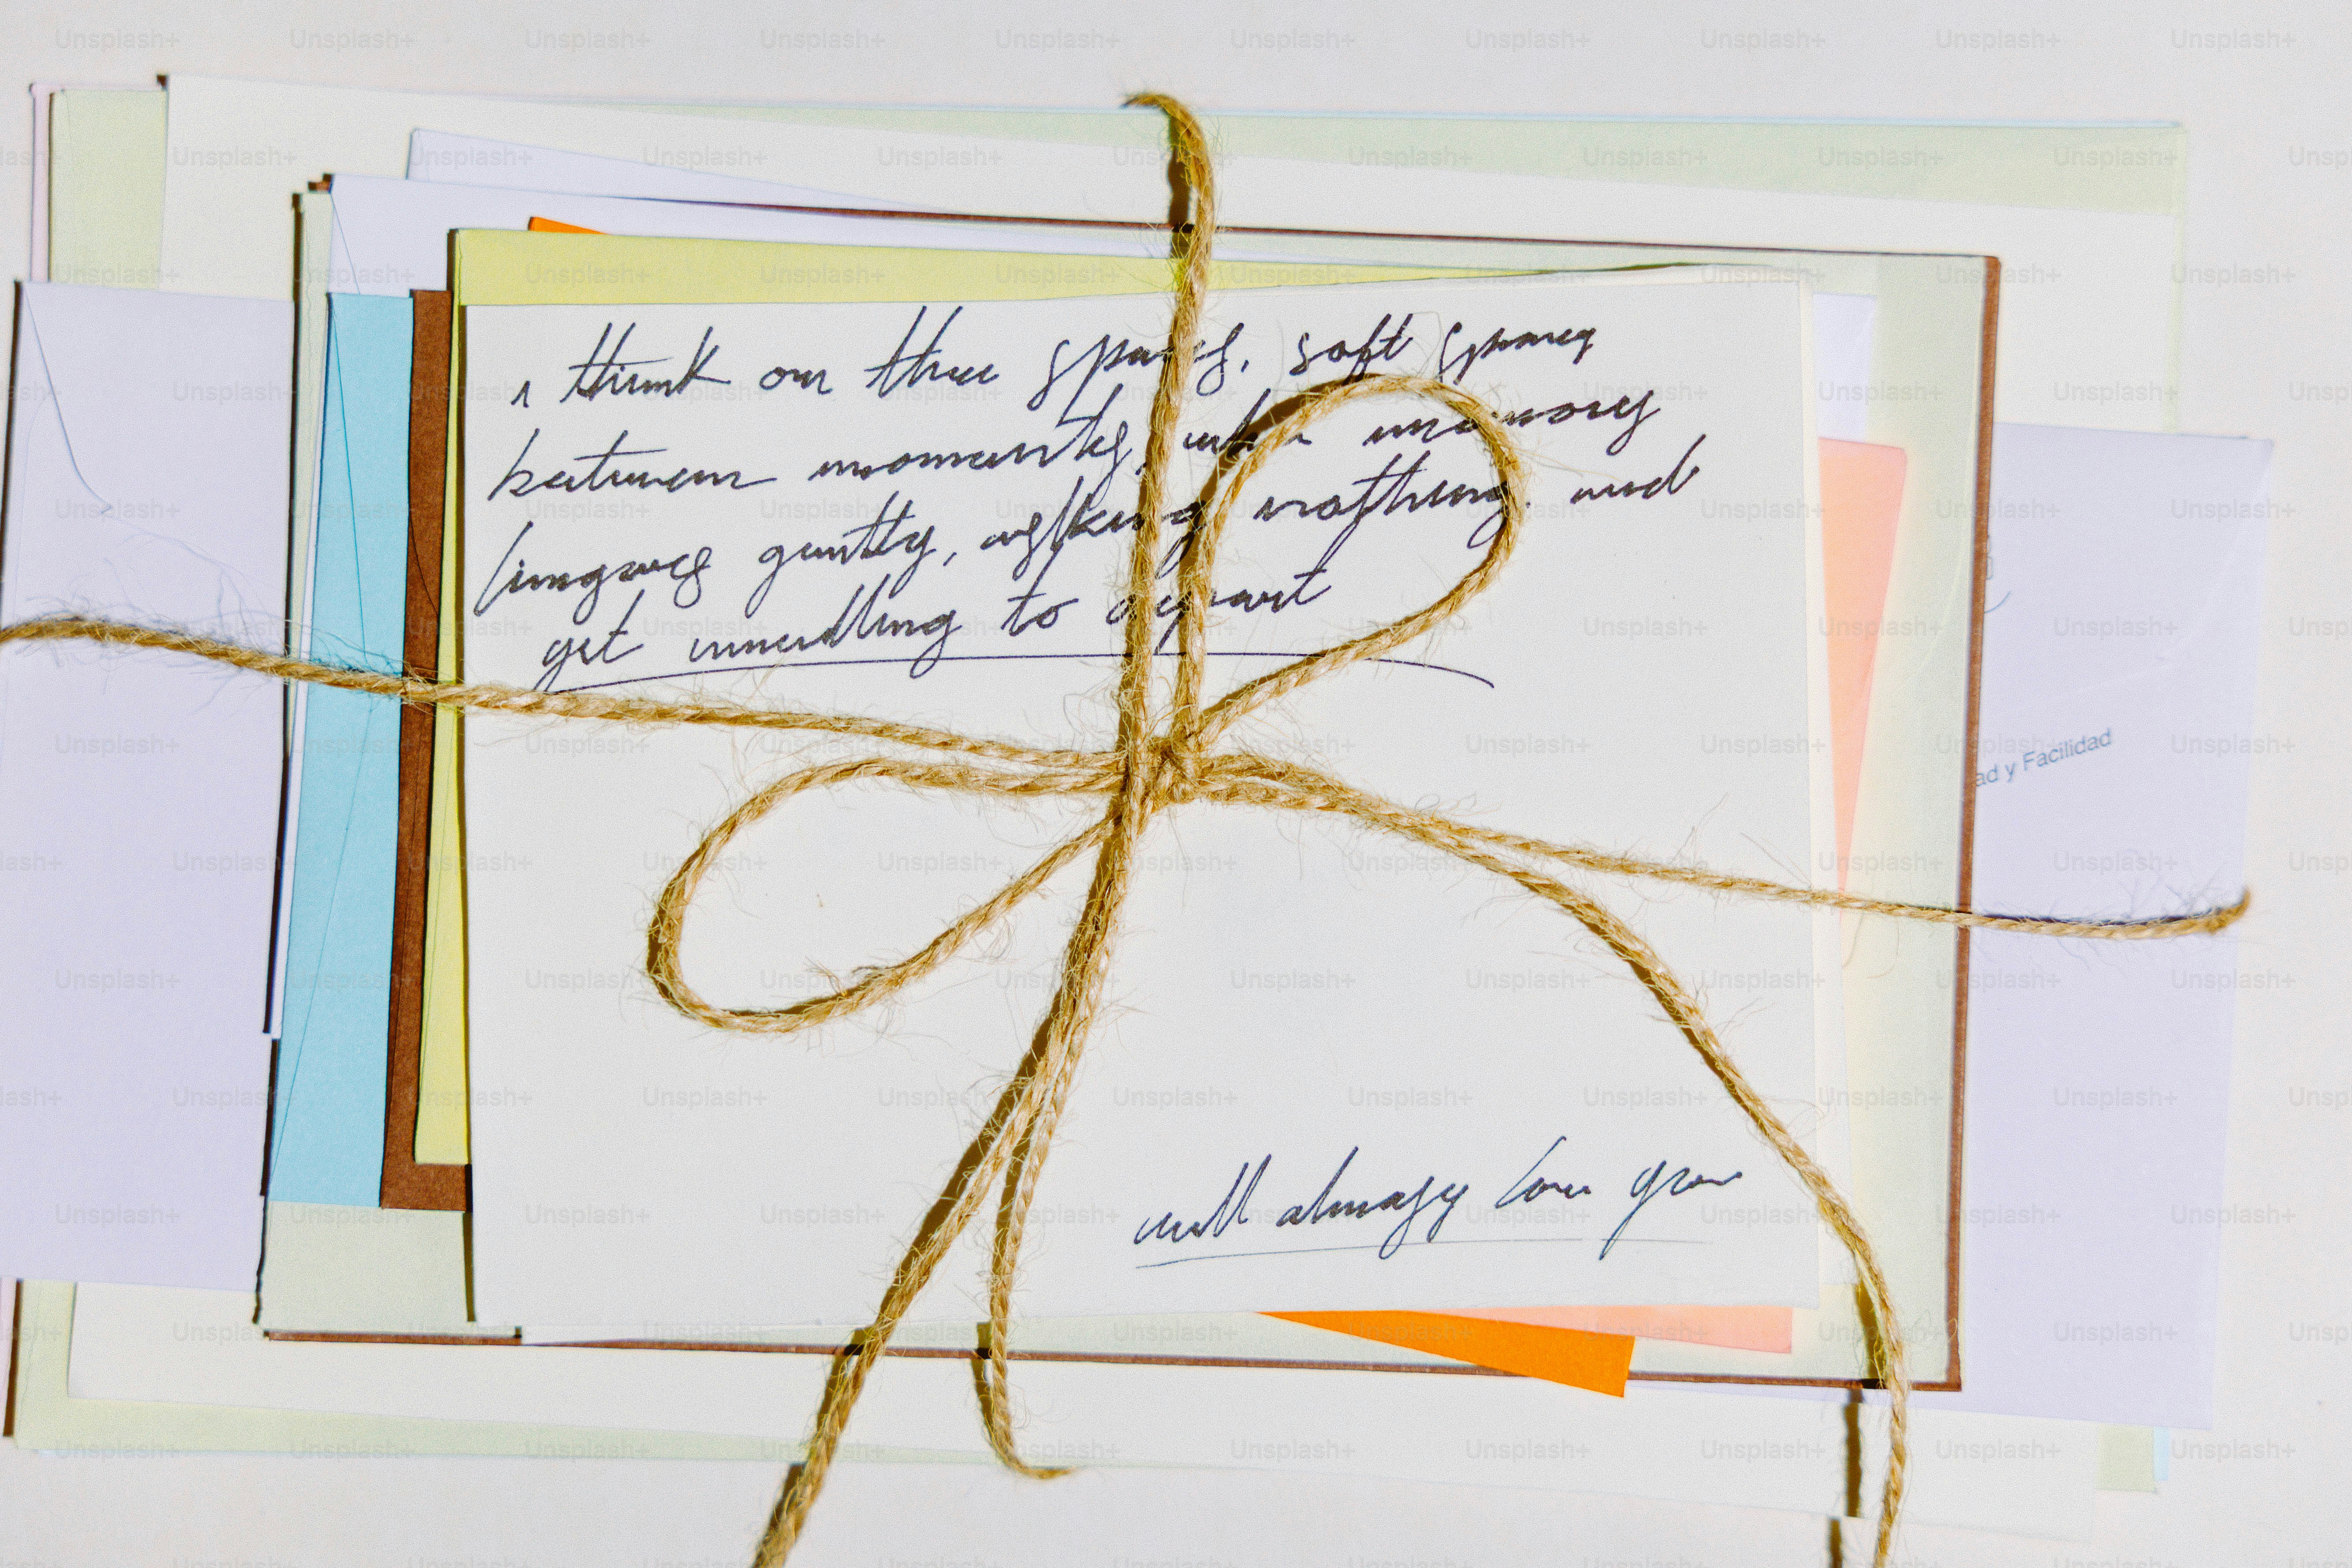 I think on those spaces, soft spaces
between moments, when memory
lingers gently, asking nothing, and
yet unwilling to depart
will always love you
ad y Facilidad